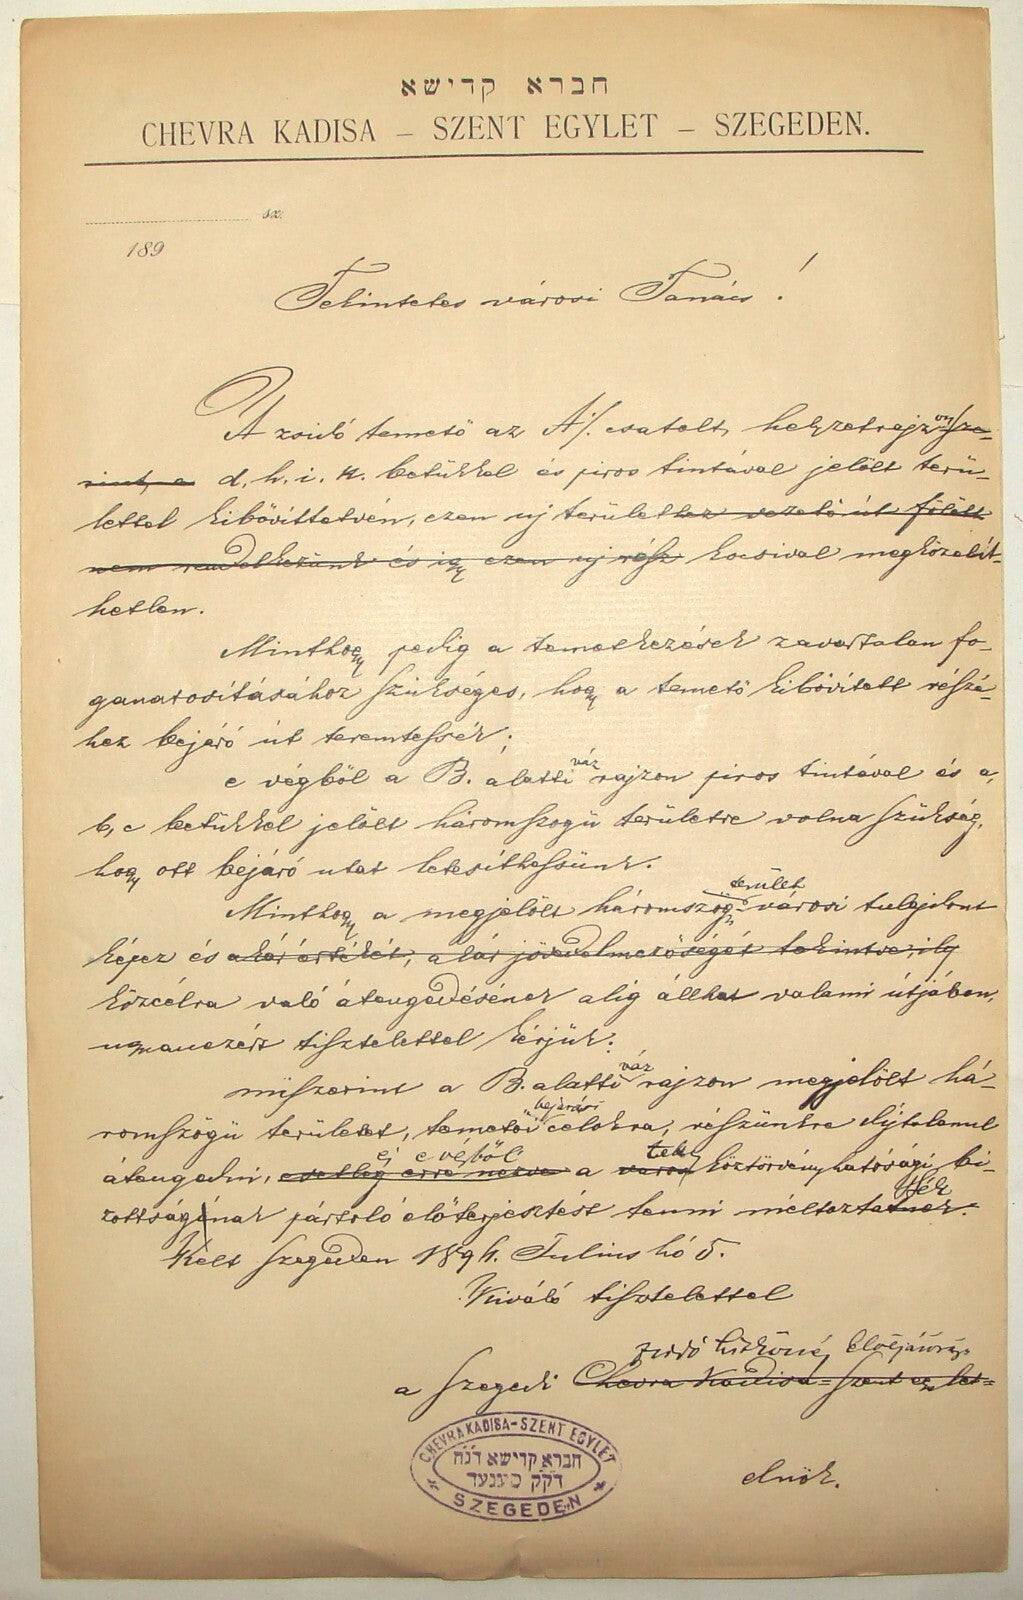 חברא קדישא
CHEVRA KADISA – SZENT EGYLET – SZEGEDEN.
sz.
189
Tekintetes városi Tanács!
A zsidó temető az A/. csatolt helyzetrajz sze-
rint, a d. h. i. k. betükkel és piros tintával jelölt terü-
lettel kibővíttetvén, ezen uj területhez vezető út fölött
nem rendelkezünk és igy ezen uj rész kocsival megközelít-
hetlen.
Minthogy pedig a temetkezések zavartalan fo-
ganatositásához szükséges, hogy a temető kibővített részé-
hez bejáró út teremtessék;
váz
e végből a B. alatti rajzon piros tintával és a,
b, c betükkel jelölt háromszögü területre volna szükség,
hogy ott bejáró utat letesíthessünk.
terület
Minthogy a megjelölt háromszög városi tulajdont
képez és akár értékét, akár jövedelmezőségét tekintve, ily
közcélra való átengedésének alig állhat valami útjában,
ugyanezért tisztelettel kérjük:
váz
miszerint a B. alatti rajzon megjelölt há-
bejárási
romszögü területet, temetői célokra, részünkre díjtalanul
e végből
tek
átengedni, esetleg erre nézve a városi köztörvényhatósági bi-
zottságának pártoló előterjesztést tenni méltóztatnék.
Kelt Szegeden 1894. Julius hó 5.
Kiváló tisztelettel
zsidó hitközség Elöljárósága
a szegedi Chevra Kadisa-Szent egylet
elnök.
CHEVRA KADISA-SZENT EGYLET
חברא קדישא דג״ח
דק״ק סעגעד
SZEGEDEN